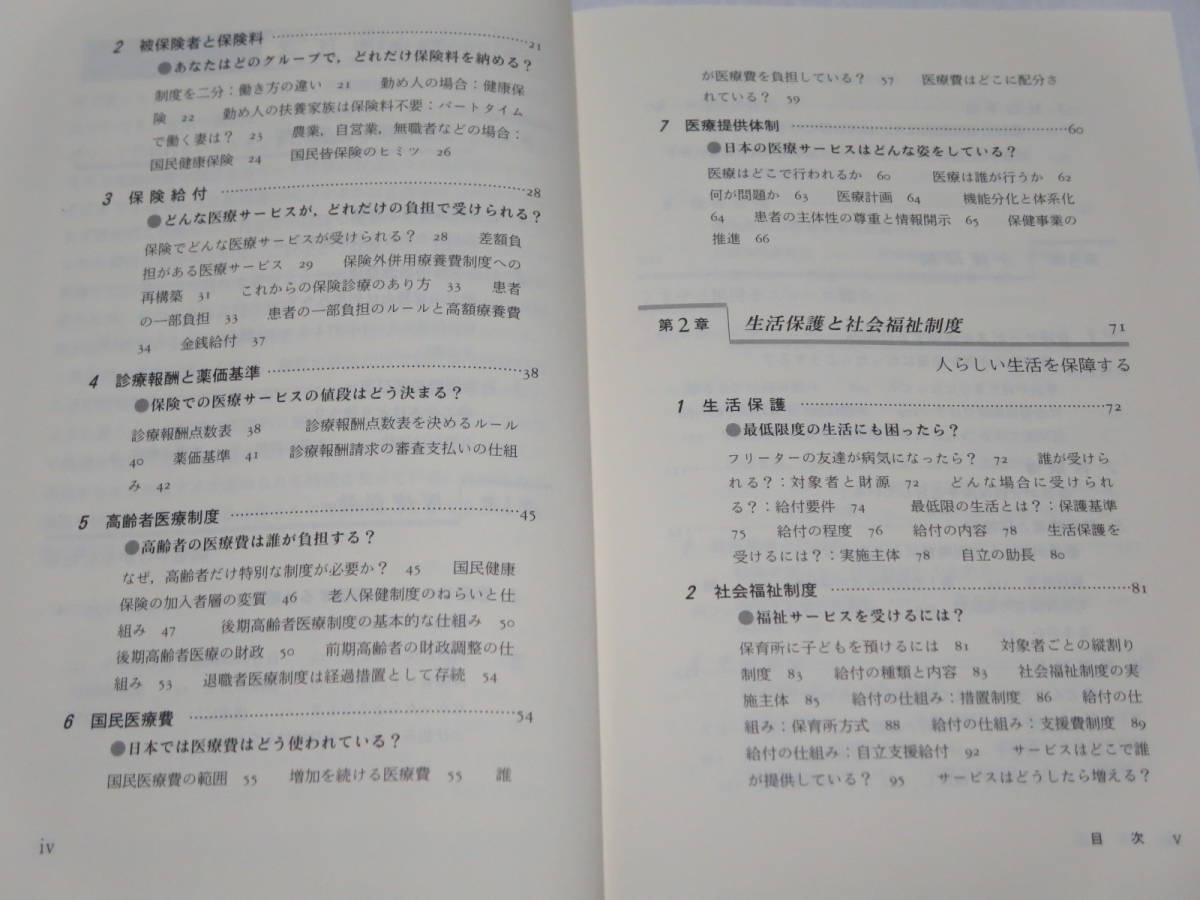 2 被保険者と保険料 ………… 21
●あなたはどのグループで，どれだけ保険料を納める？
制度を二分：働き方の違い 21 勤め人の場合：健康保
険 22 勤め人の扶養家族は保険料不要：パートタイム
で働く妻は？ 23 農業，自営業，無職者などの場合：
国民健康保険 24 国民皆保険のヒミツ 26
3 保険給付 ………… 28
●どんな医療サービスが，どれだけの負担で受けられる？
保険でどんな医療サービスが受けられる？ 28 差額負
担がある医療サービス 29 保険外併用療養費制度への
再構築 31 これからの保険診療のあり方 33 患者
の一部負担 33 患者の一部負担のルールと高額療養費
34 金銭給付 37
4 診療報酬と薬価基準 ………… 38
●保険での医療サービスの値段はどう決まる？
診療報酬点数表 38 診療報酬点数表を決めるルール
40 薬価基準 41 診療報酬請求の審査支払いの仕組
み 42
5 高齢者医療制度 ………… 45
●高齢者の医療費は誰が負担する？
なぜ，高齢者だけ特別な制度が必要か？ 45 国民健康
保険の加入者層の変質 46 老人保健制度のねらいと仕
組み 47 後期高齢者医療制度の基本的な仕組み 50
後期高齢者医療の財政 50 前期高齢者の財政調整の仕
組み 53 退職者医療制度は経過措置として存続 54
6 国民医療費 ………… 54
●日本では医療費はどう使われている？
国民医療費の範囲 55 増加を続ける医療費 55 誰
iv
が医療費を負担している？ 57 医療費はどこに配分さ
れている？ 59
7 医療提供体制 ………… 60
●日本の医療サービスはどんな姿をしている？
医療はどこで行われるか 60 医療は誰が行うか 62
何が問題か 63 医療計画 64 機能分化と体系化
64 患者の主体性の尊重と情報開示 65 保健事業の
推進 66
第2章 生活保護と社会福祉制度 71
人らしい生活を保障する
1 生活保護 ………… 72
●最低限度の生活にも困ったら？
フリーターの友達が病気になったら？ 72 誰が受けら
れる？：対象者と財源 72 どんな場合に受けられ
る？：給付要件 74 最低限の生活とは？：保護基準
75 給付の程度 76 給付の内容 78 生活保護を
受けるには？：実施主体 78 自立の助長 80
2 社会福祉制度 ………… 81
●福祉サービスを受けるには？
保育所に子どもを預けるには 81 対象者ごとの縦割り
制度 83 給付の種類と内容 83 社会福祉制度の実
施主体 85 給付の仕組み：措置制度 86 給付の仕
組み：保育所方式 88 給付の仕組み：支援費制度 89
給付の仕組み：自立支援給付 92 サービスはどこで誰
が提供している？ 95 サービスはどうしたら増える？
目 次 v